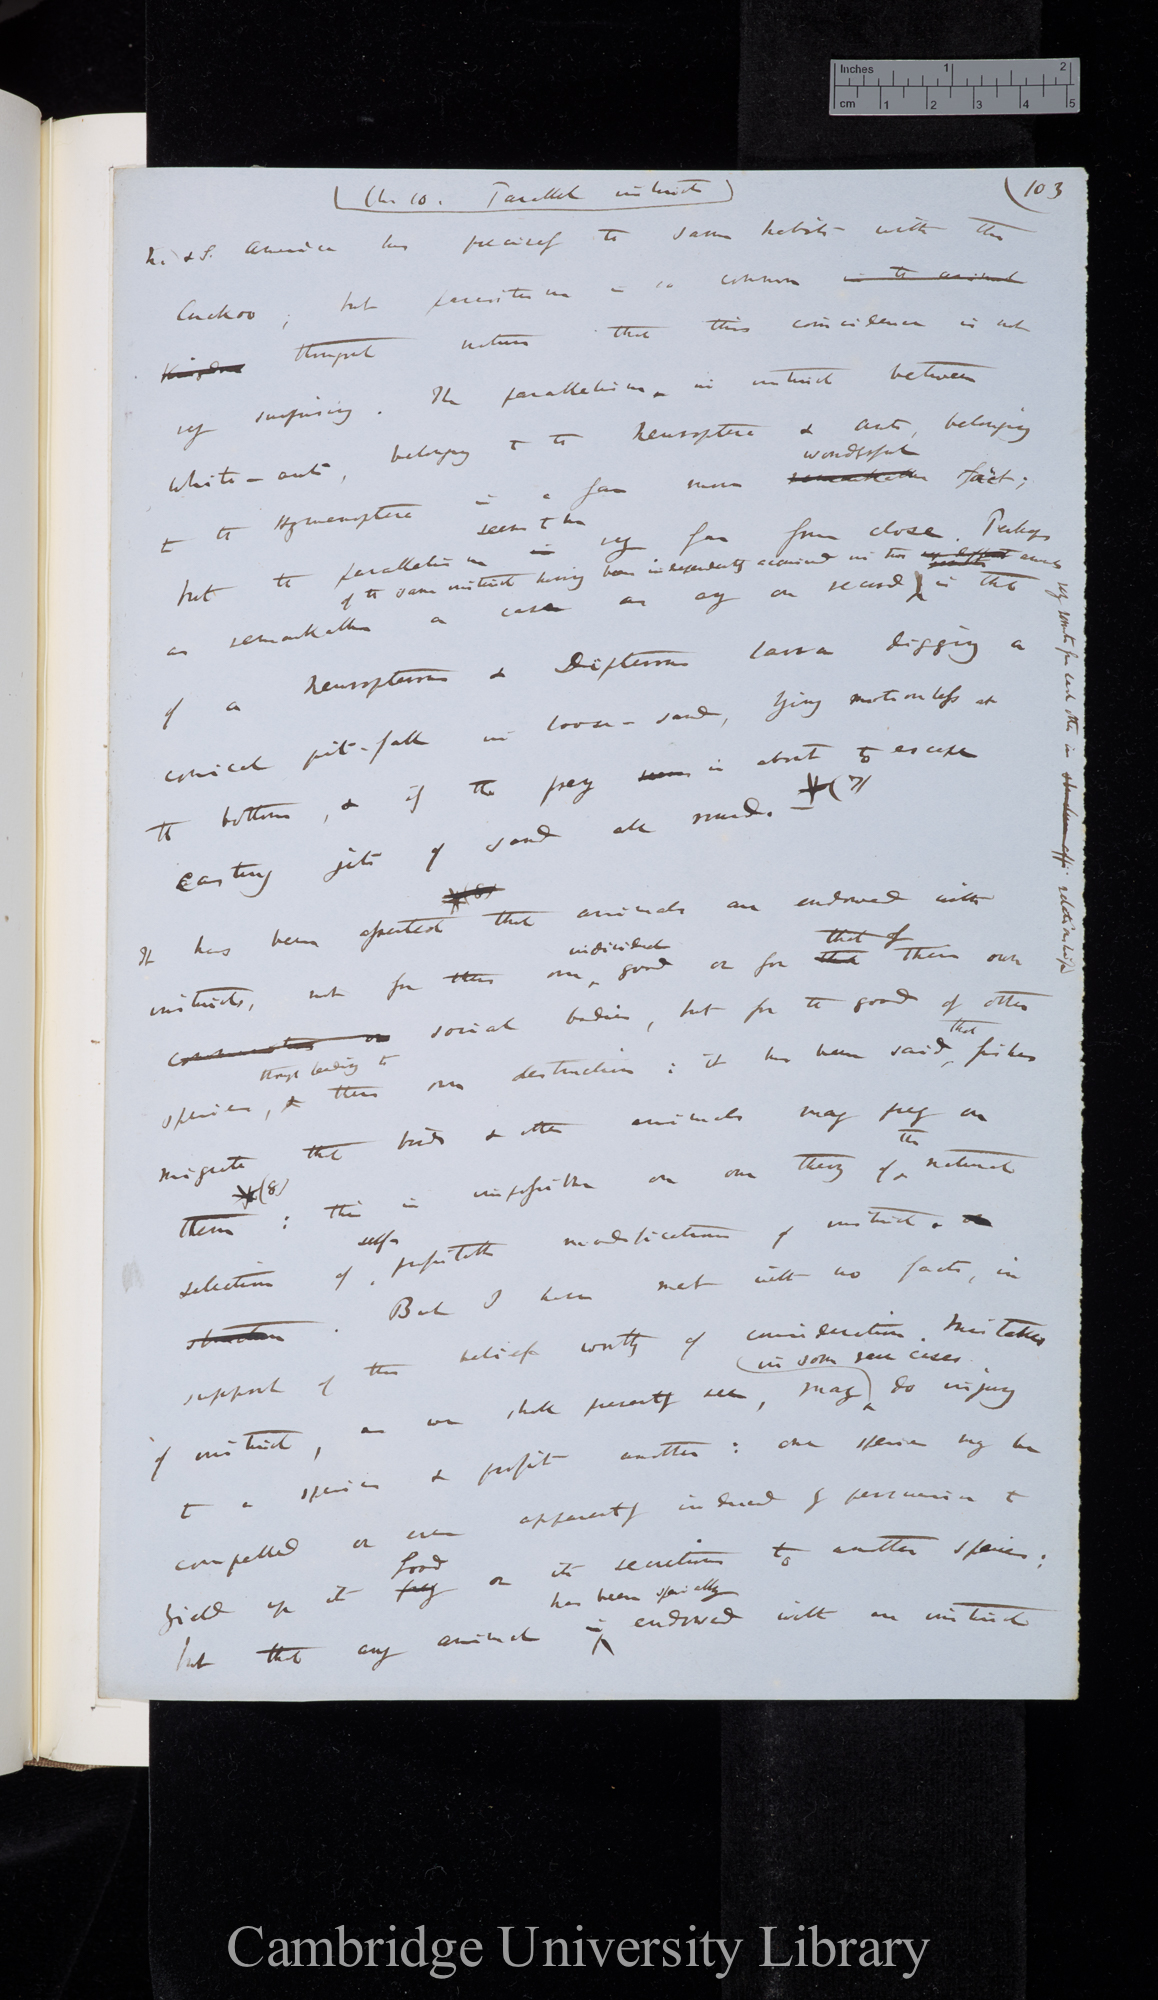 Inches 1 2
cm 1 2 3 4 5
(Ch. 10. Parallel instincts) (103
N. & S. America has precisely the same habits with the
Cuckoo; but parasitism is so common in the animal
Kingdom throughout nature that this coincidence is not
very surprising. The parallelism in instinct between
white-ants, belonging to the Neuroptera & ants, belonging
wonderful
to the Hymenoptera is a far more remarkable fact;
seems to be
but the parallelism is very far from close. Perhaps
of the same instinct having been independently acquired in two animals
very remote from each other in relationship
as remarkable a case as any on record is that
of a Neuropterous & Dipterous larva digging a
conical pit-fall in loose-sand, lying motionless at
the bottom, & if the prey is about to escape
casting jets of sand all round. (7)
(8)
It has been asserted that animals are endowed with
individual that of
instincts, not for their own good or for that their own
communities or social bodies, but for the good of other
though leading to that
species, & their own destruction: it has been said fishes
migrate that birds & other animals may prey on
(8) the
them: this is impossible on our theory of natural
self-
selection of profitable modifications of instinct. or
structure. But I have met with no facts, in
support of this belief worthy of consideration. Mistakes
in some rare cases
of instinct, as we shall presently see, may do injury
to a species & profit another: one species may be
compelled or even apparently induced by persuasion to
food
yield up its prey or its secretions to another species;
has been specially
but that any animal is endowed with an instinct
Cambridge University Library